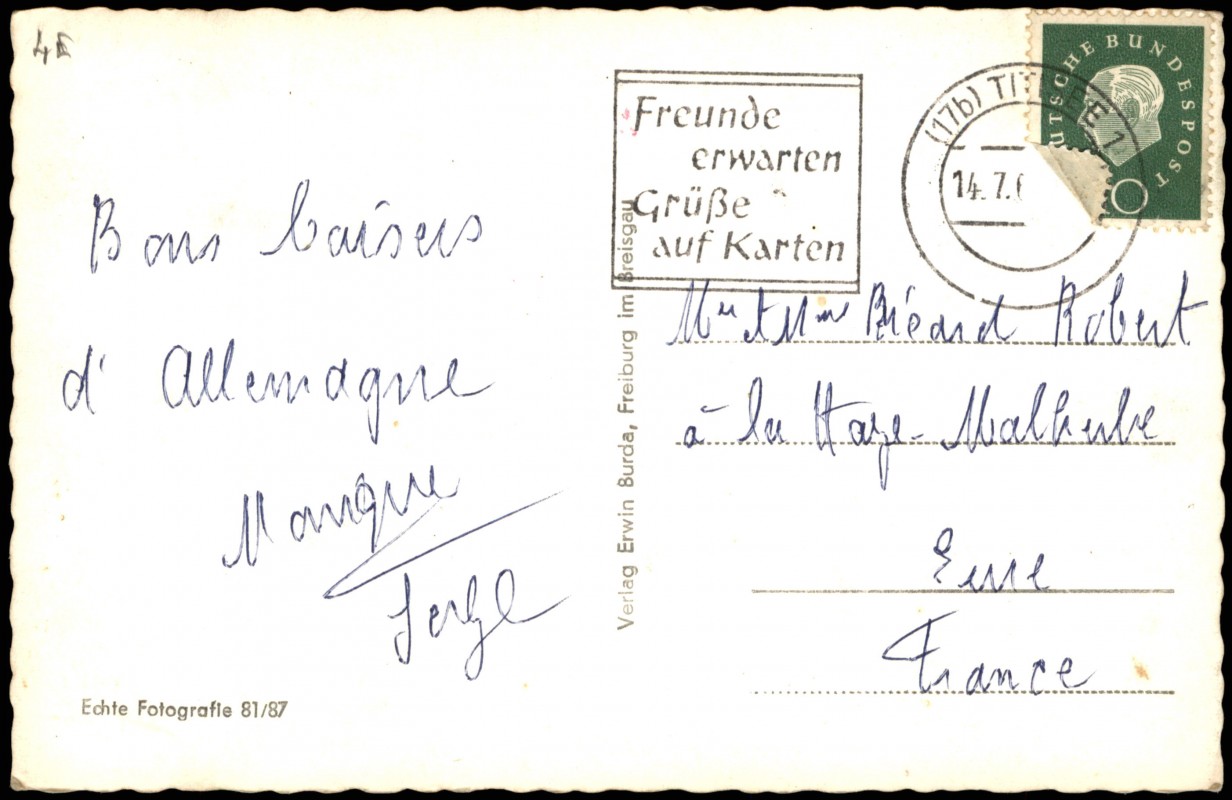 4F
Freunde
erwarten
Grüße
auf Karten
(17b) TIT EE 1
14.7.6
UTSCHE BUNDESPOST
0
Bons baisers
d'Allemagne
Monique
Serge
Echte Fotografie 81/87
Verlag Erwin Burda, Freiburg im Breisgau
Mr et Mme Biéard Robert
à la Haye-Malherbe
Eure
France